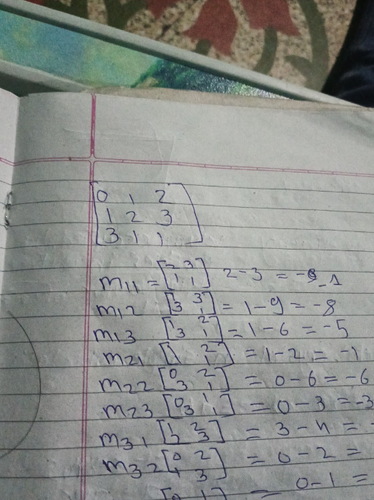 0 1 2
1 2 3
3 1 1
m11 = [2 3 1 1] 2-3 = -1
m12 [1 3 3 1] = 1-9 = -8
m13 [1 2 3 1] = 1-6 = -5
m21 [1 2 1 1] = 1-2 = -1
m22 [0 2 3 1] = 0-6 = -6
m23 [0 1 3 1] = 0-3 = -3
m31 [1 2 2 3] = 3-4 = -
m32 [0 2 1 3] = 0-2 =
0-1 =